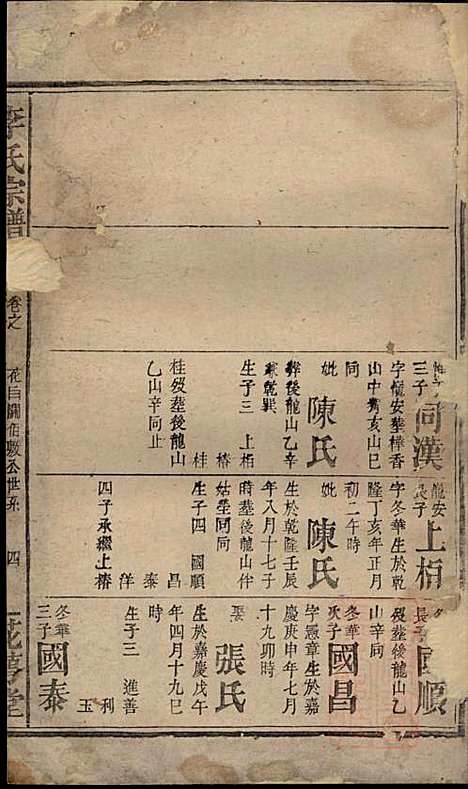 李氏宗譜
卷之
四
三子同漢
字龍安塟樟香
山中嘴亥山巳
同
妣陳氏
塟後龍山乙辛
兼乾巽
生子三 上栢
椿
桂
桂歿塟後龍山
乙山辛同止
龍安
長子上栢
字冬華生於乾
隆丁亥年正月
初二午時
妣陳氏
生於乾隆壬辰
年八月十七子
時塟後龍山伴
姑塋同同
生子四 國順
昌
泰
洋
四子承繼上椿
長子國順
歿塟後龍山乙
山辛同
冬華
次子國昌
字憲章生於嘉
慶庚申年七月
十九卯時
娶張氏
生於嘉慶戊午
年四月十九巳
時
生子三 進善
利
玉
冬華
三子國泰